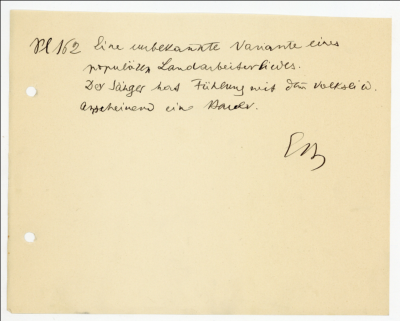 Pl 162 Eine unbekannte Variante eines
populären Landarbeiterliedes.
Der Sänger hat Fühlung mit dem Volkslied.
Anscheinend ein